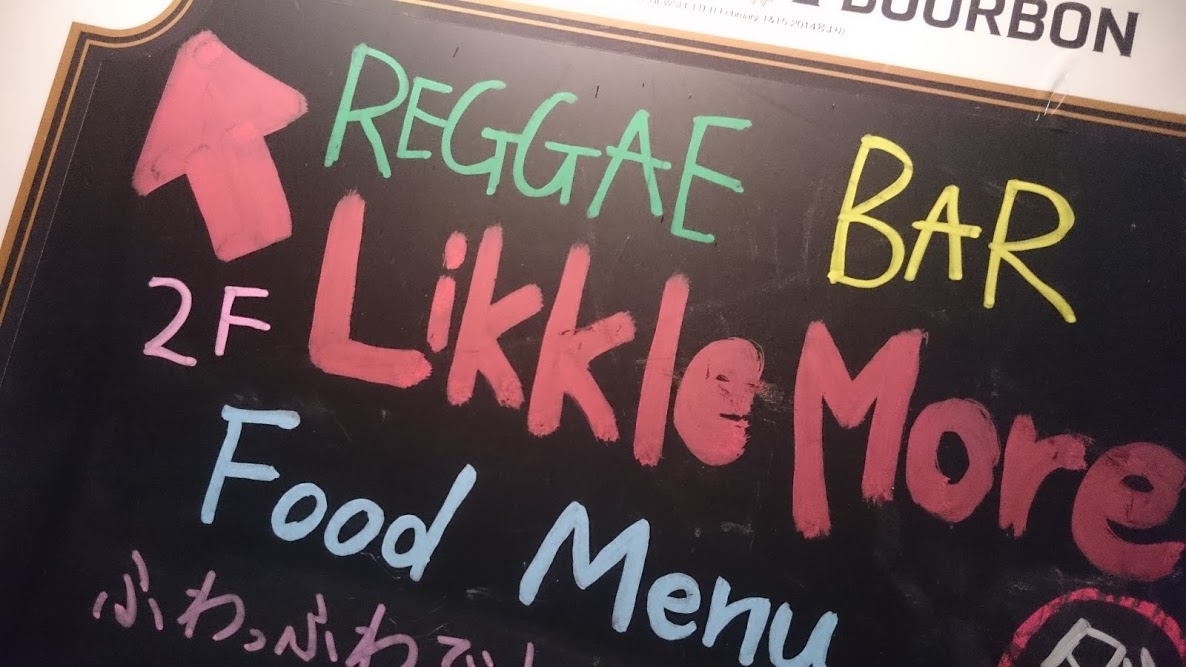 BOURBON
REGGAE BAR
2F
Likkle More
Food Menu
ふわっふわ